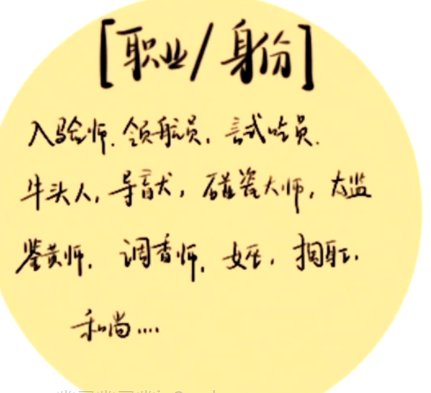 [职业/身份]
入验师. 领航员, 试吃员.
牛头人, 导盲犬, 碰瓷大师, 太监
鉴黄师. 调香师.
和尚....